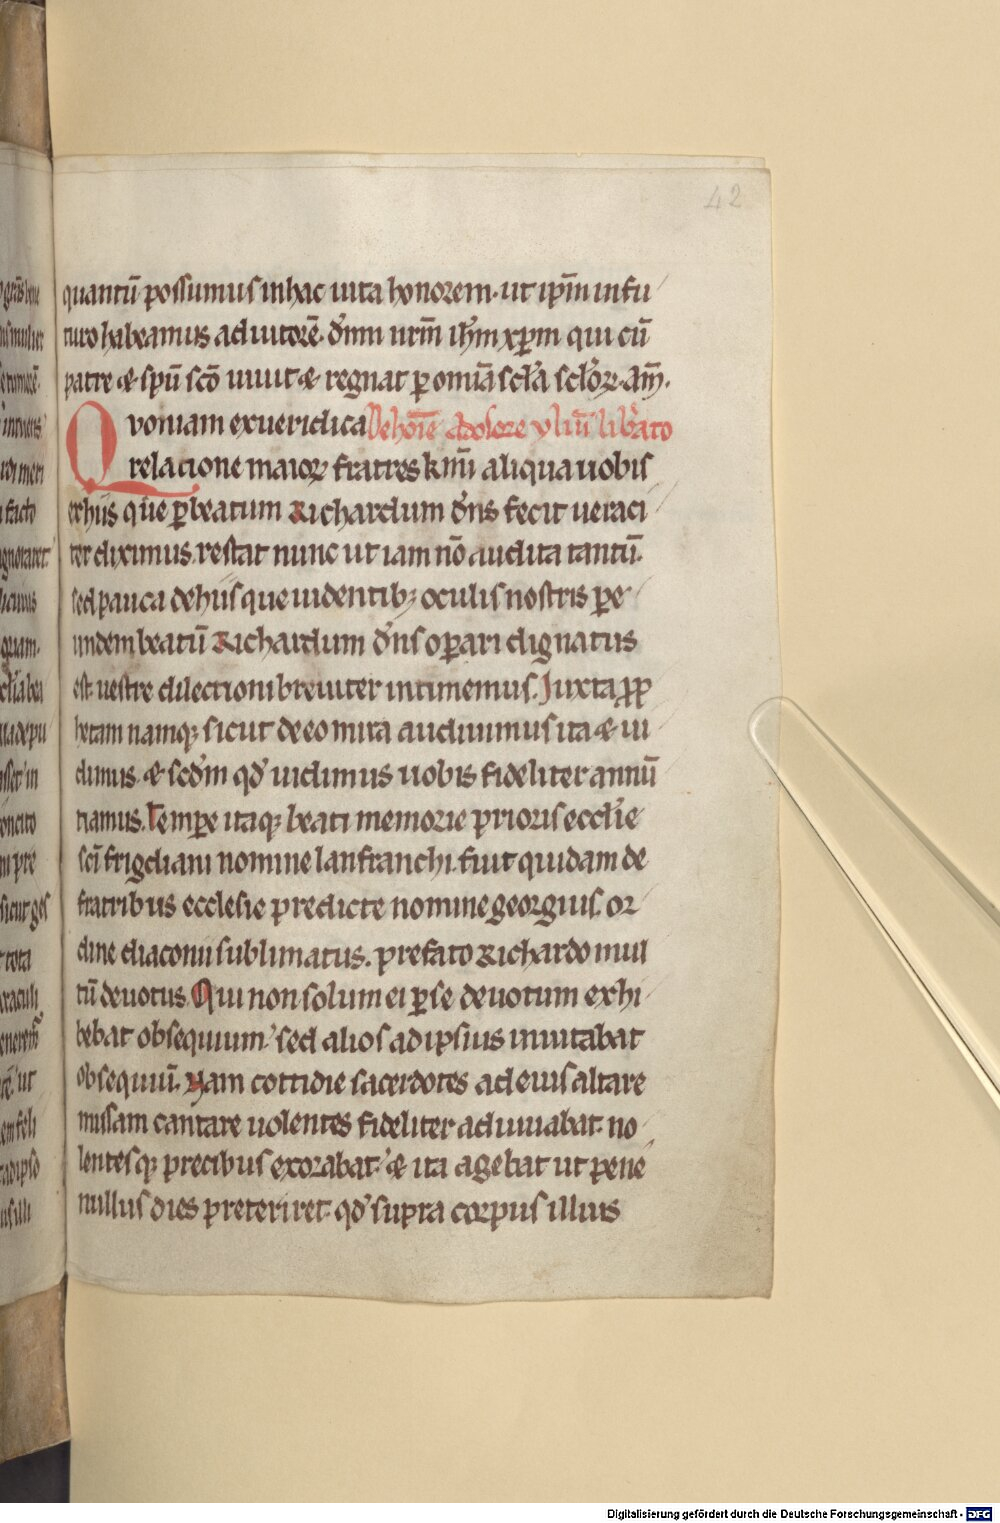 42
quantū possumus in hac uita honorem. ut ip̄m in fu
turo habeamus adiutorē. dn̄m nr̄m ih̄m xp̄m qui cū
patre & sp̄u sc̄o uiuit & regnat ꝑ omīa scl̄a scl̄oꝝ. am̄.
Quoniam ex ueridica De hoīe a dolore yliū lib̄ato
relacione maioꝝ fratres k̄mi aliqua uobis
ex hiis que ꝑ beatum Richardum dn̄s fecit ueraci
ter diximus. restat nunc ut iam nō audita tantū.
sed pauca de hiis que uidentibꝫ oculis nostris ꝑ e
undem beatū Richardum dn̄s oꝑari dignatus
est. uestre dilectioni breuiter intimemus. Juxta ꝓp
hetam namqꝫ sicut de eo mira audiuimus ita & ui
dimus. & scd̄m qd̄ uidimus uobis fideliter annū
tiamus. Temꝑe itaqꝫ beati memorie prioris eccl̄ie
sc̄i frigdiani nomine lanfranchi. fuit quidam de
fratribus ecclesie predicte nomine georgius. or
dine diaconii sublimatus. prefato Richardo mul
tū deuotus. Qui non solum ei ꝑ se deuotum exhi
bebat obsequium. sed alios ad ipsius inuitabat
obsequiū. Nam cottidie sacerdotes ad eius altare
missam cantare uolentes fideliter adiuuabat. no
lentesqꝫ precibus exorabat. & ita agebat ut pene
nullus dies preteriret. qd̄ supra corpus illius
Digitalisierung gefördert durch die Deutsche Forschungsgemeinschaft - DFG